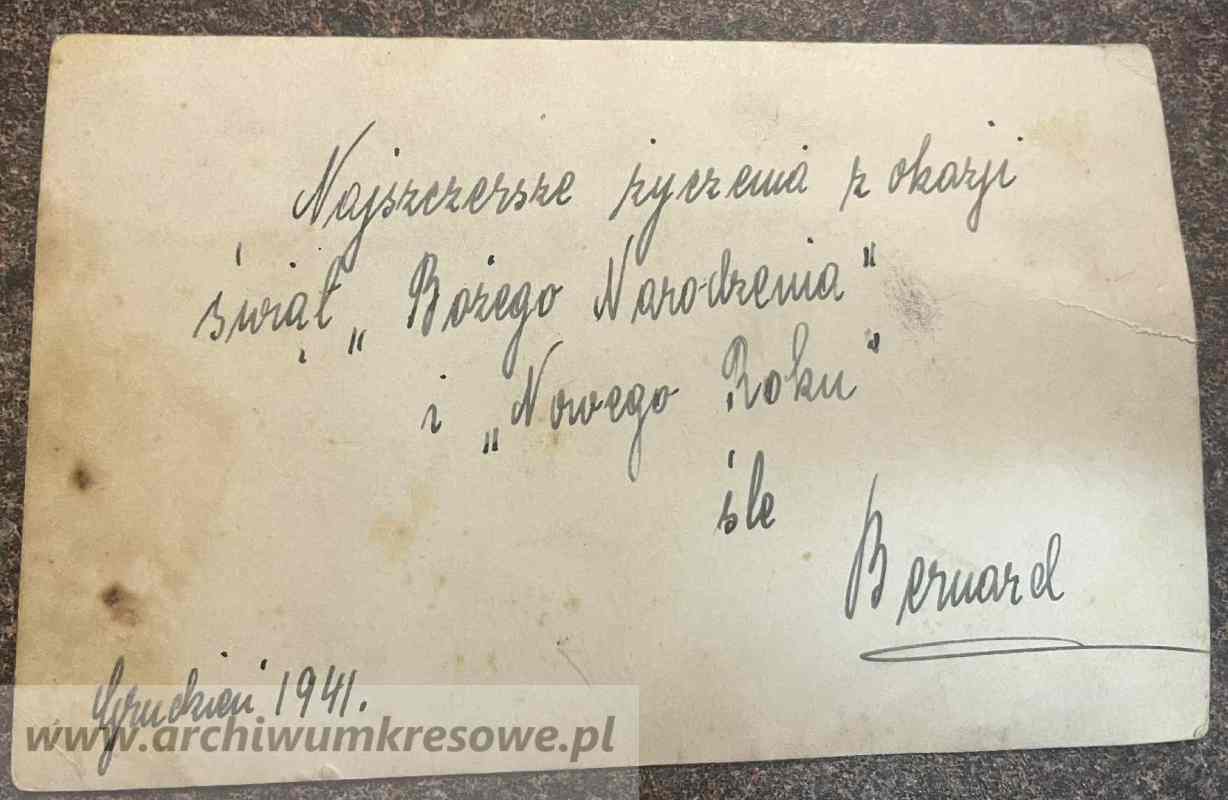 Najszczersze życzenia z okazji
świąt „Bożego Narodzenia"
i „Nowego Roku"
śle
Bernard
Grudzień 1941.
www.archiwumkresowe.pl